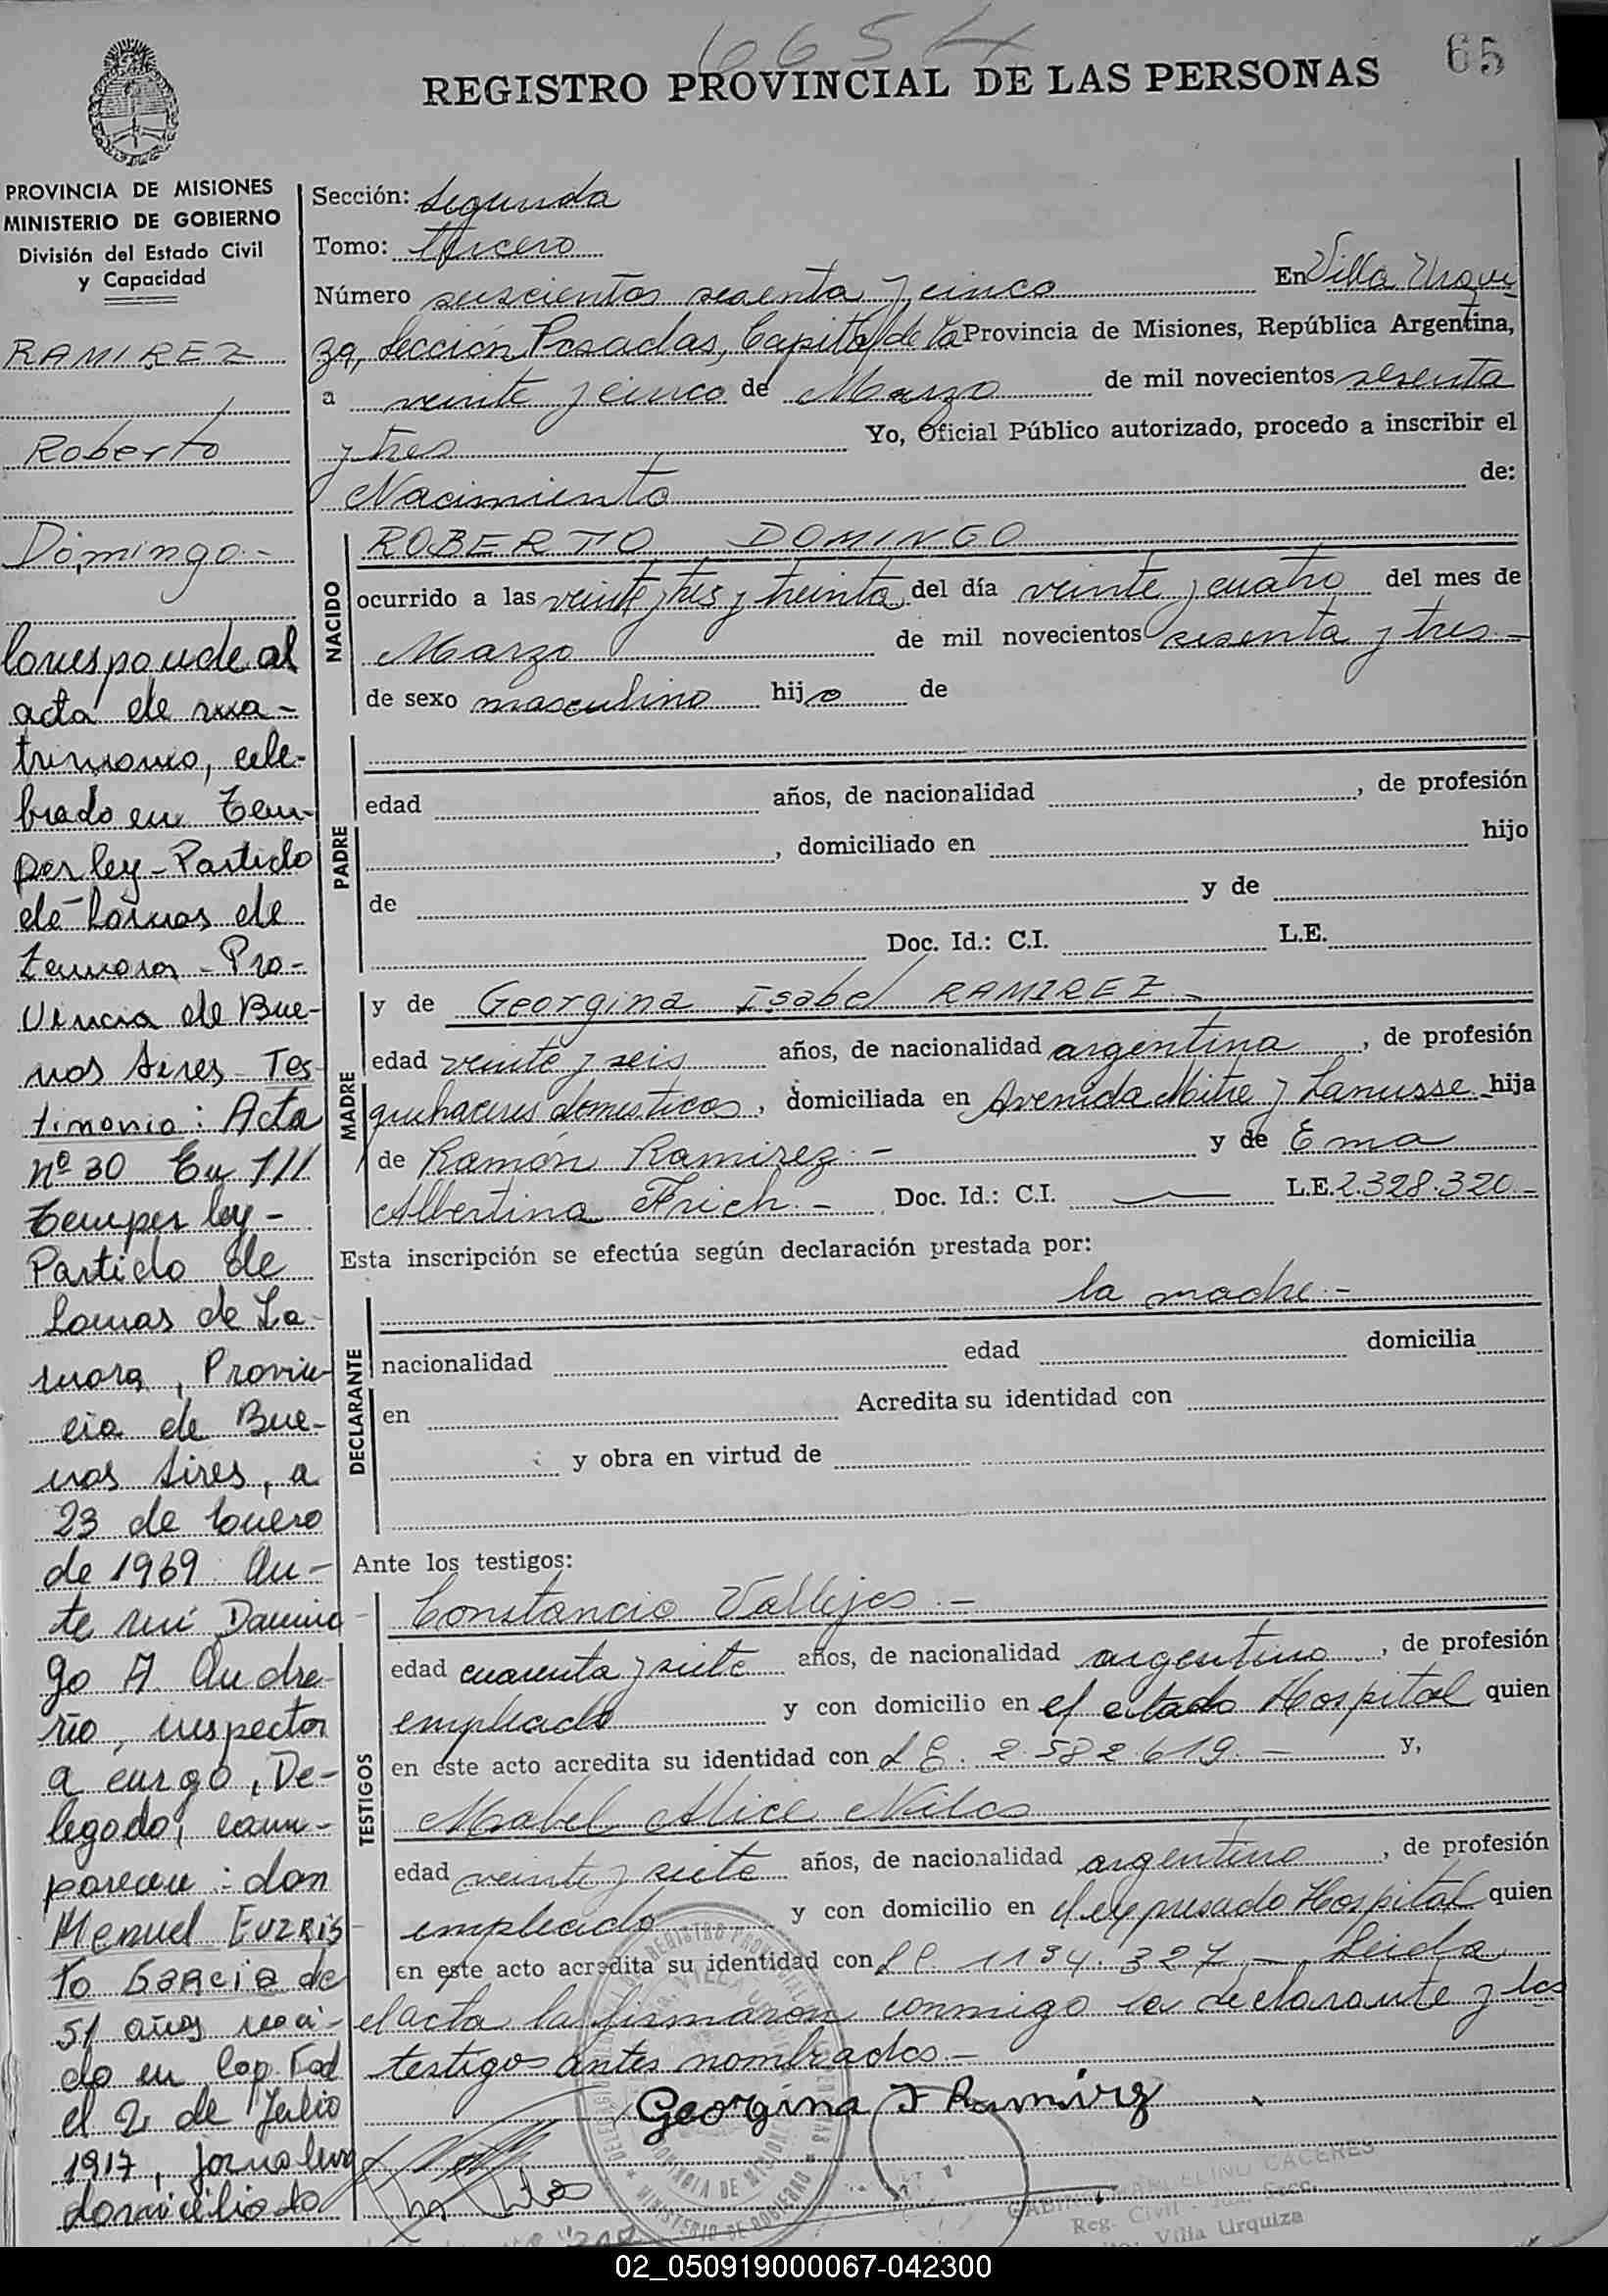 6654
65
REGISTRO PROVINCIAL DE LAS PERSONAS
PROVINCIA DE MISIONES
MINISTERIO DE GOBIERNO
División del Estado Civil
y Capacidad
RAMIREZ
Roberto
Domingo.-
Corresponde al
acta de ma-
trimonio, cele-
brado en Tem-
perley - Partido
de Lomas de
Zamora - Pro-
vincia de Bue-
nos Aires - Tes-
timonio: Acta
nº 30 En
Temperley -
Partido de
Lomas de Za-
mora, Provin-
cia de Bue-
nos Aires, a
23 de Enero
de 1969. An-
te mi Domin-
go A. Andre-
rio, inspector
a cargo, De-
legado, com-
parecen: don
Manuel Evaris
to Garcia de
51 años naci-
do en Cap. Fed
el 2 de Julio
1917, jornalero
domiciliado
Sección: Segunda
Tomo: Tercero
Número seiscientos sesenta y cinco En Villa Urqui-
za, Sección Posadas, Capital de la Provincia de Misiones, República Argentina,
a veinte y cinco de Marzo de mil novecientos sesenta
y tres Yo, Oficial Público autorizado, procedo a inscribir el
Nacimiento de:
NACIDO
ROBERTO DOMINGO
ocurrido a las veinte y tres y treinta del día veinte y cuatro del mes de
Marzo de mil novecientos sesenta y tres.-
de sexo masculino hijo de
PADRE
edad años, de nacionalidad , de profesión
, domiciliado en hijo
de y de
Doc. Id.: C.I. L.E.
MADRE
y de Georgina Isabel RAMIREZ.-
edad veinte y seis años, de nacionalidad argentina , de profesión
quehaceres domesticos, domiciliada en Avenida Mitre y Lanusse - hija
de Ramón Ramirez.- y de Ema
Albertina Frich.- Doc. Id.: C.I. — L.E. 2.328.320.-
Esta inscripción se efectúa según declaración prestada por:
DECLARANTE
la madre.-
nacionalidad edad domicilia
en Acredita su identidad con
y obra en virtud de
Ante los testigos:
TESTIGOS
Constancio Vallejos.-
edad cuarenta y siete años, de nacionalidad argentino , de profesión
empleado y con domicilio en el citado Hospital quien
en este acto acredita su identidad con L E. 2.582.619.- y,
Mabel Alice Nilos
edad veinte y siete años, de nacionalidad argentino , de profesión
empleado y con domicilio en el expresado Hospital quien
en este acto acredita su identidad con L C. 1194.327.- Leida
el acta la firmaron conmigo la declarante y los
testigos antes nombrados.-
Georgina I Ramirez
MARCELINO CACERES
Reg. Civil
Villa Urquiza
02_050919000067-042300